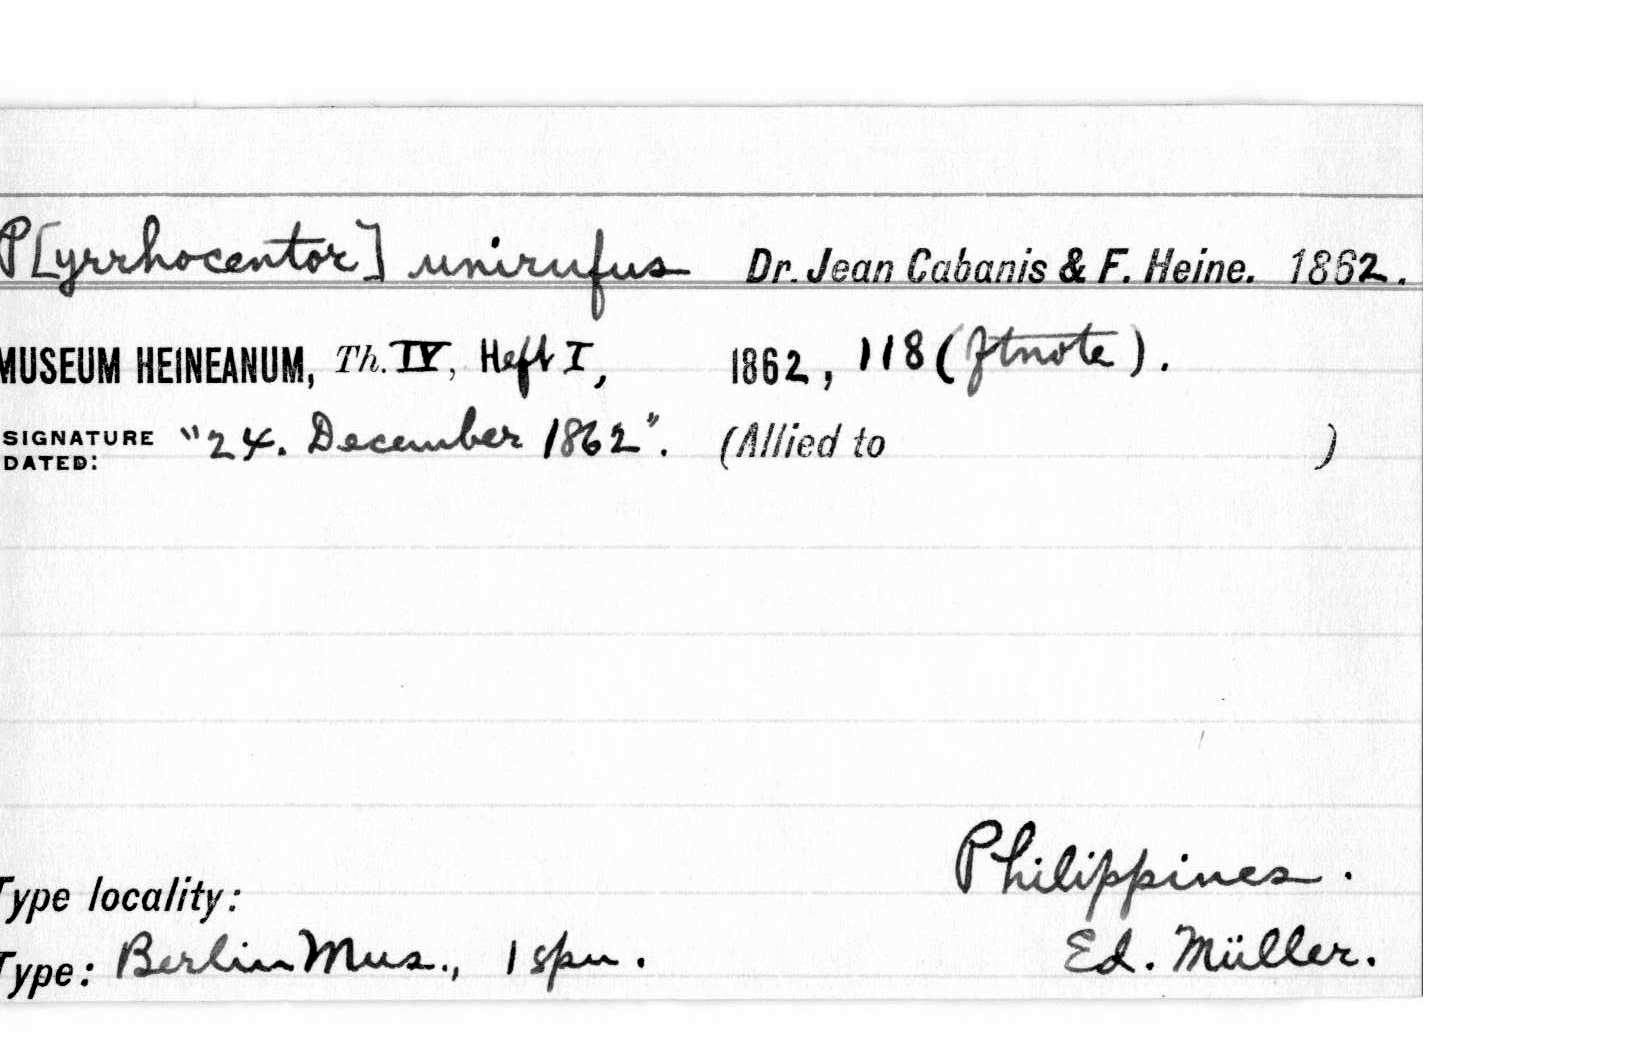 P[yrrhocentor] unirufus Dr. Jean Cabanis & F. Heine. 1862.
MUSEUM HEINEANUM, Th. IV, Heft I, 1862, 118 (ftnote).
SIGNATURE DATED: "24. December 1862". (Allied to )
Philippines.
Type locality:
Type: Berlin Mus., 1 spm. Ed. Müller.